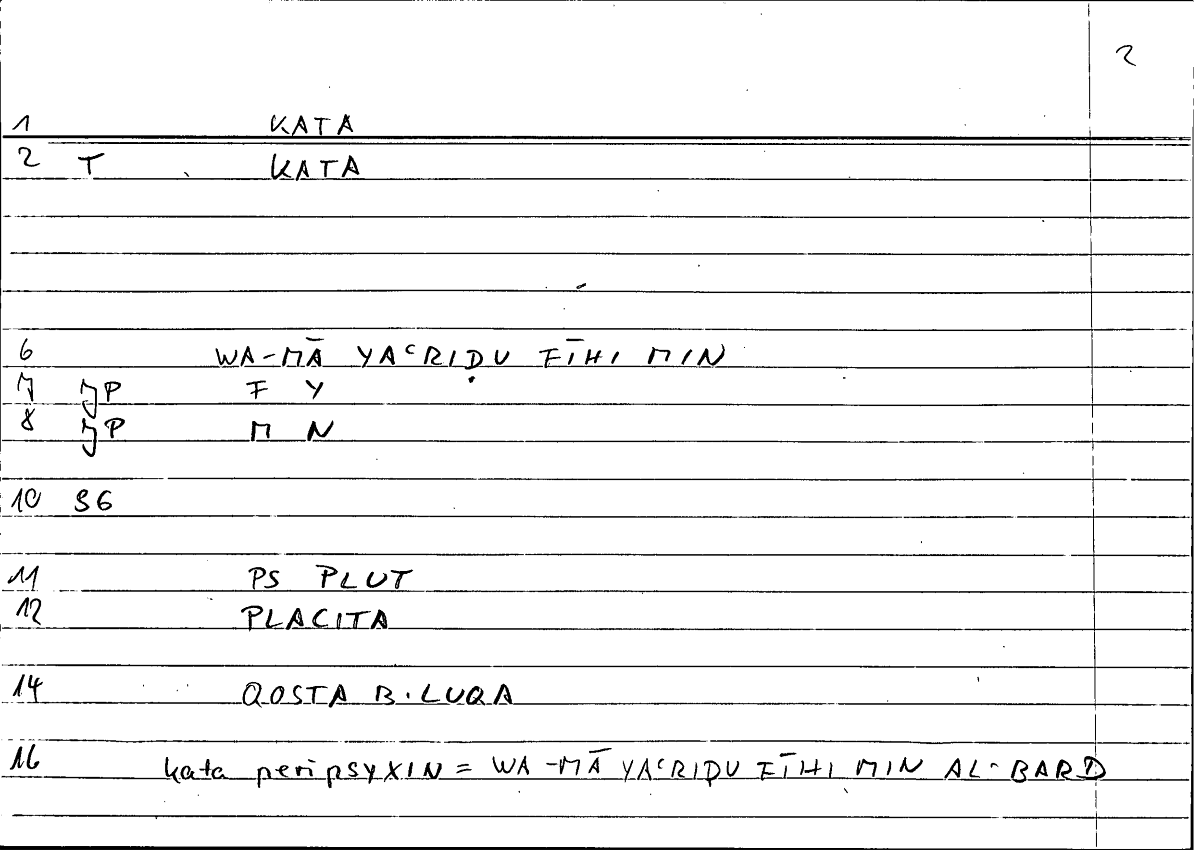 2
1 KATA
2 T KATA
6 WA-MĀ YAʿRIḌU FĪHI MIN
7 JP F Y
8 JP M N
10 S6
11 PS PLUT
12 PLACITA
14 QOSTA B. LUQA
16 kata peripsyXIN = WA-MĀ YAʿRIḌU FĪHI MIN AL-BARD